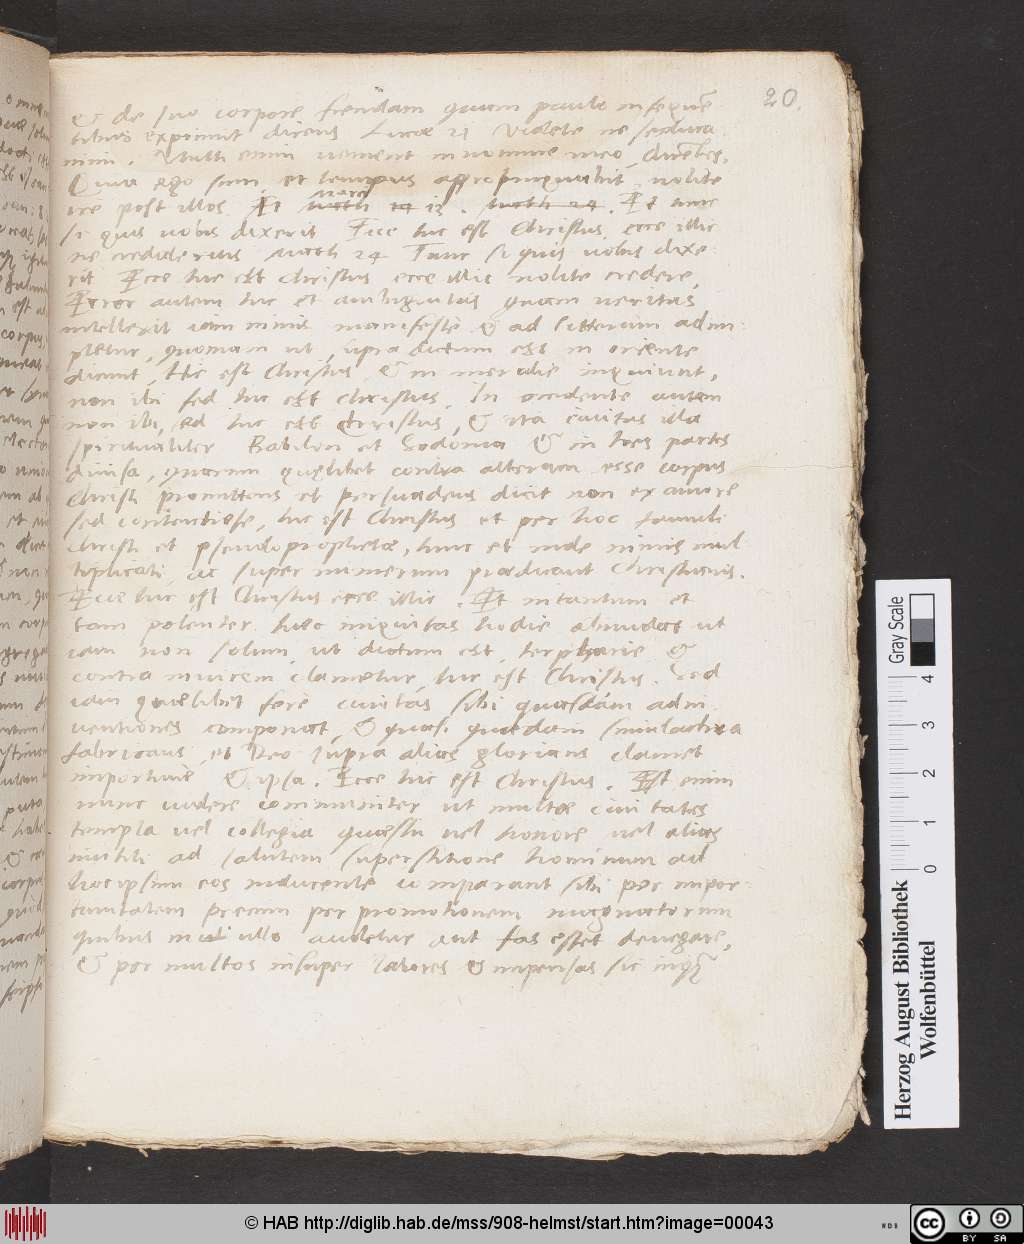 20.
& de suo corpore fiendam quam paulo in sequē
tibus exprimit dicens Lucæ 21 Videte ne seduca
mini. Multi enim venient in nomine meo, dicētes,
Quia ego sum, et tempus appropinquabit, nolite
ire post illos. Et Marci 13. Et tunc
si quis vobis dixerit Ecce hic est Christus, ecce illic
ne credideritis Math 24 Tunc si quis vobis dixe
rit Ecce hic est Christus ecce illic nolite credere,
Error autem hic et ambiguitas quam veritas
intellexit iam nimis manifeste & ad litteram adim
pletur, quoniam ut supra dictum est in oriente
dicunt, Hic est Christus & in meridie inquiunt,
non ibi sed hic est Christus. In occidente autem
non ibi, sed hic est Christus, & ita civitas illa
spiritualiter Babilon et Sodoma & in tres partes
divisa, quarum quęlibet contra alteram esse corpus
Christi promittens et persuadens dicit non ex amore
sed contentiose, hic est Christus et per hoc famuli
Christi et pseudoprophetæ, hinc et inde nimis mul
tiplicati, ac super numerum prædicant Christianis.
Ecce hic est Christus ecce illic. Et in tantum et
tam potenter hæc iniquitas hodie abundat ut
iam non solum, ut dictum est, terpharie &
contra invicem clametur, hic est Christus. Sed
iam quælibet fere civitas sibi quasdam adin
ventiones componat, & quasi quædam simulachra
fabricans, et Deo supra alias glorians clamet
importune & ipsa. Ecce hic est Christus. Est enim
nunc videre communiter ut multæ civitates
templa vel collegia quæstu vel honore vel alias
inutili ad salutem superstitione hominum ad
hoc ipsum eos inducente comparant sibi per impor
tunitatem precum per promotionem magnatorum
quibus nichil ullo audetur aut fas esset denegare,
& per multos insuper labores & impensas sic inqȝ
Herzog August Bibliothek
Wolfenbüttel
Gray Scale
0 1 2 3 4
© HAB http://diglib.hab.de/mss/908-helmst/start.htm?image=00043
WDB
cc BY SA